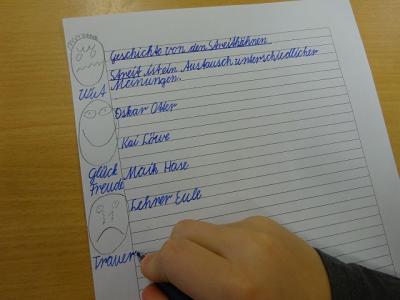 Geschichte von den Streithähnen
Streit ist ein Austausch unterschiedlicher
Meinungen.
Wut
Oskar Otter
Kai Löwe
Glück
Freude
Maik Hase
Lehrer Eule
Trauer